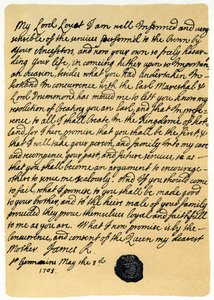 My Lord Lovat I am well Informed and very
sensible of the services performed to the Crown by
your Ancestors, and how your own so truly hazar-
ding your life, in coming hither upon so Important
an occasion, besides what you had undertaken. In-
hand in concurrence with the Earl Marechal &
Lord Drummond has moved me to lett you know my
resolution of Creating you an Earl, and that in prefe-
rence to all I shall Create in the Kingdome of Scot-
land, for I here promise that you shall be the first &
that I will take your person and family into my care
and recompence your past and future services, so as
that you shall become an argument to encourage
others to serve me zealously. And if you should come
to fail, what I promise to you shall be made good
to your brother, and to the heirs male of your family
provided they prove themselves loyall and faithfull
to me as you are. What I now promise is by the
concurrence, and consent of the Queen my dearest
Mother James R.
St Germains May the 3d
1703.